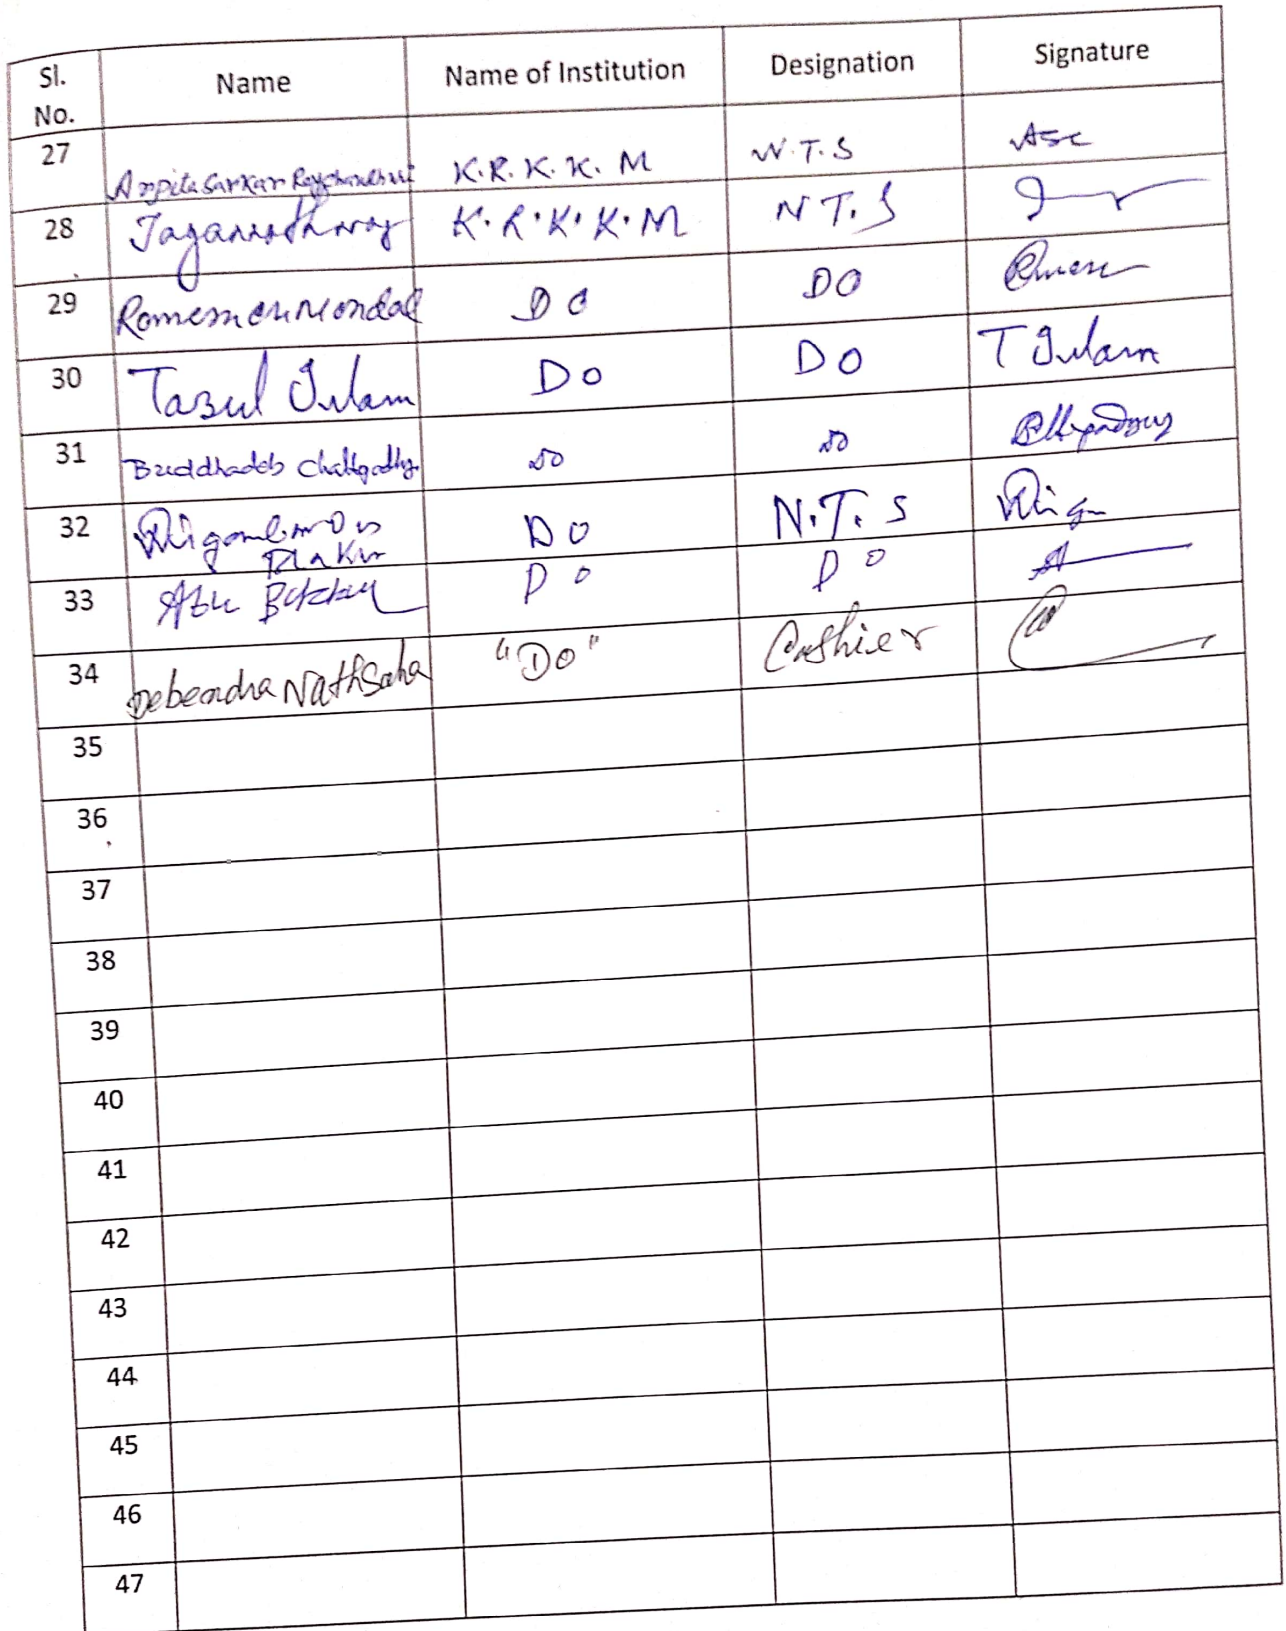 Sl. No. Name Name of Institution Designation Signature
27 Arpita Sarkar Raychaudhuri K.R.K.K.M N.T.S ASC
28 Jagannath Roy K.R.K.K.M N T.S
29 Mondal DO DO
30 Tazul Islam DO DO T Islam
31 Buddhadeb DO DO
32 DO N.T.S
33 Abu DO DO
34 Debendra Nath Saha "DO" Cashier
35
36
37
38
39
40
41
42
43
44
45
46
47